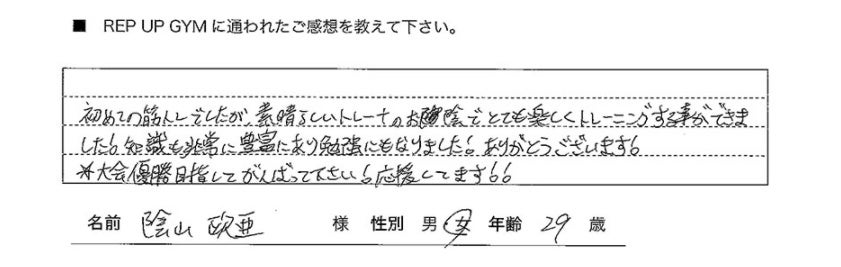 ■ REP UP GYMに通われたご感想を教えて下さい。
初めての筋トレでしたが、素晴らしいトレーナーのお陰でとても楽しくトレーニングする事ができま
した！知識も非常に豊富にあり勉強にもなりました！ありがとうございます！
*大会優勝目指してがんばって下さい！応援してます！！
名前 陰山 欧亜 様 性別 男 女 年齢 29 歳